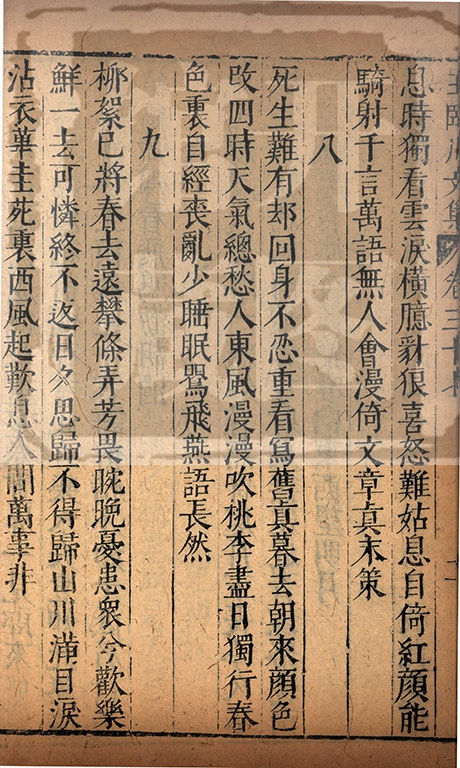 臨川文集 卷三十
息時獨看雲淚橫臆豺狼喜怒難姑息自倚紅顏能
騎射千言萬語無人會漫倚文章真末策
八
死生難有却回身不忍重看寫舊真暮去朝來顏色
改四時天氣總愁人東風漫漫吹桃李盡日獨行春
色裏自經喪亂少睡眠鸎飛燕語長然
九
柳絮已將春去遠攀條弄芳畏晼晚憂患衆兮歡樂
鮮一去可憐終不返日夕思歸不得歸山川滿目淚
沾衣圭苑裏西風起歎息人間萬事非